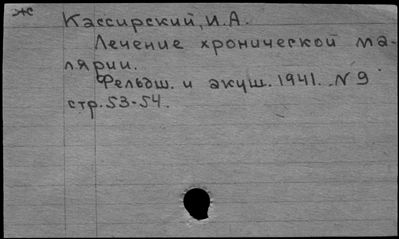 Ж
Кассирский, И.А.
Лечение хронической ма-
лярии.
Фельдш. и акуш. 1941. N 9
стр. 53-54.